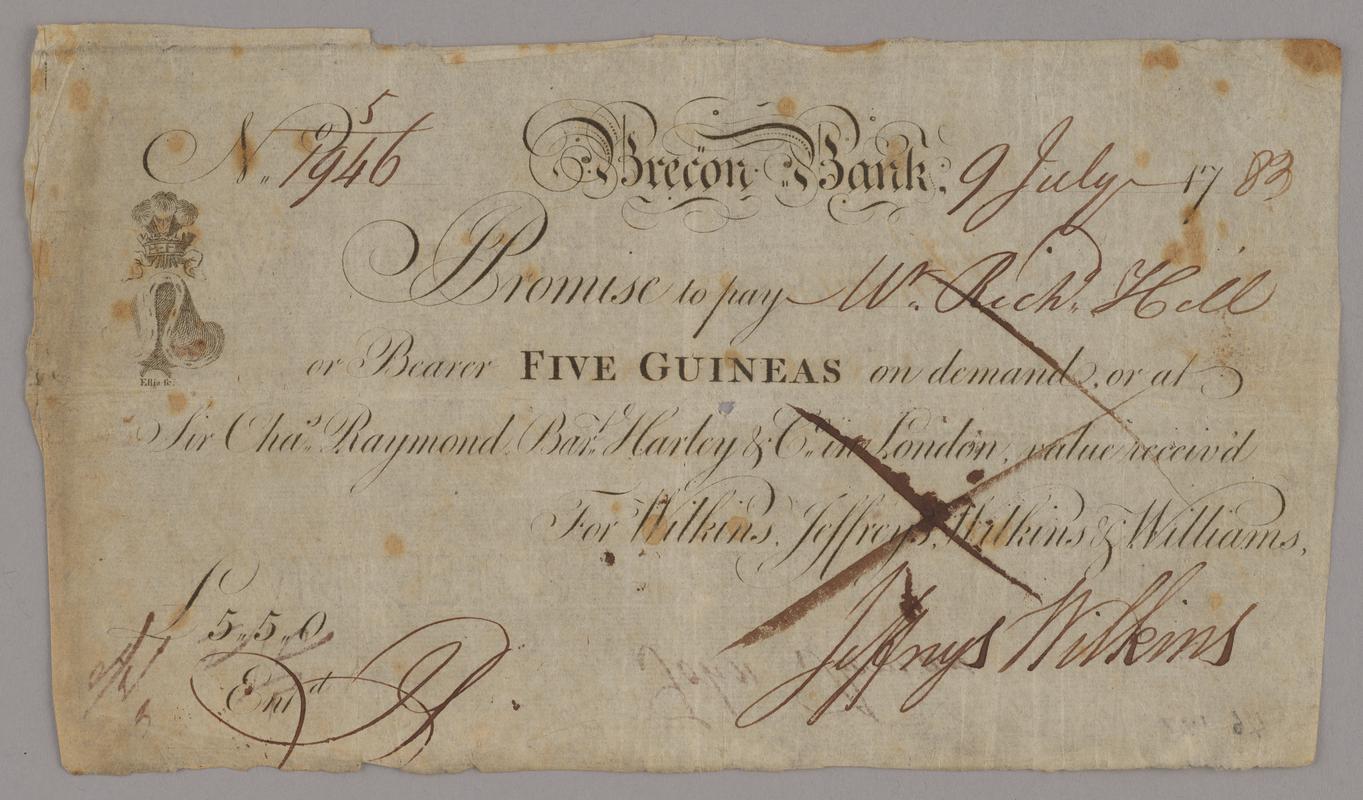 5
No. 1946 Brecon Bank, 9 July 1783
Promise to pay Mr. Richd. Hill
or Bearer FIVE GUINEAS on demand, or at
Ellis sc.
Sir Chas. Raymond Bart. Harley & Co. in London, value receiv'd
For Wilkins, Jeffreys, Wilkins & Williams,
£ 5,,5,,0
Jeffreys Wilkins
Entd